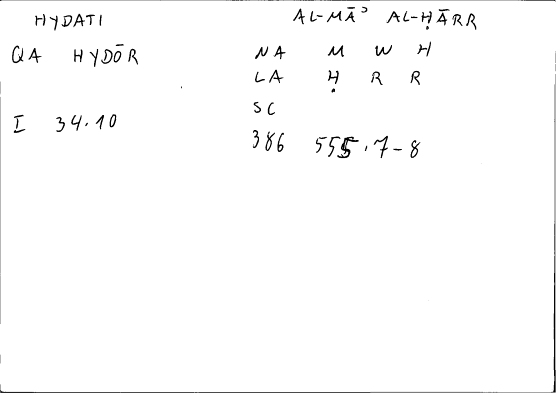 HYDATI
QA HYDŌR
I 34.10
AL-MĀʾ AL-ḤĀRR
NA M W H
LA Ḥ R R
SC
386 555.7-8